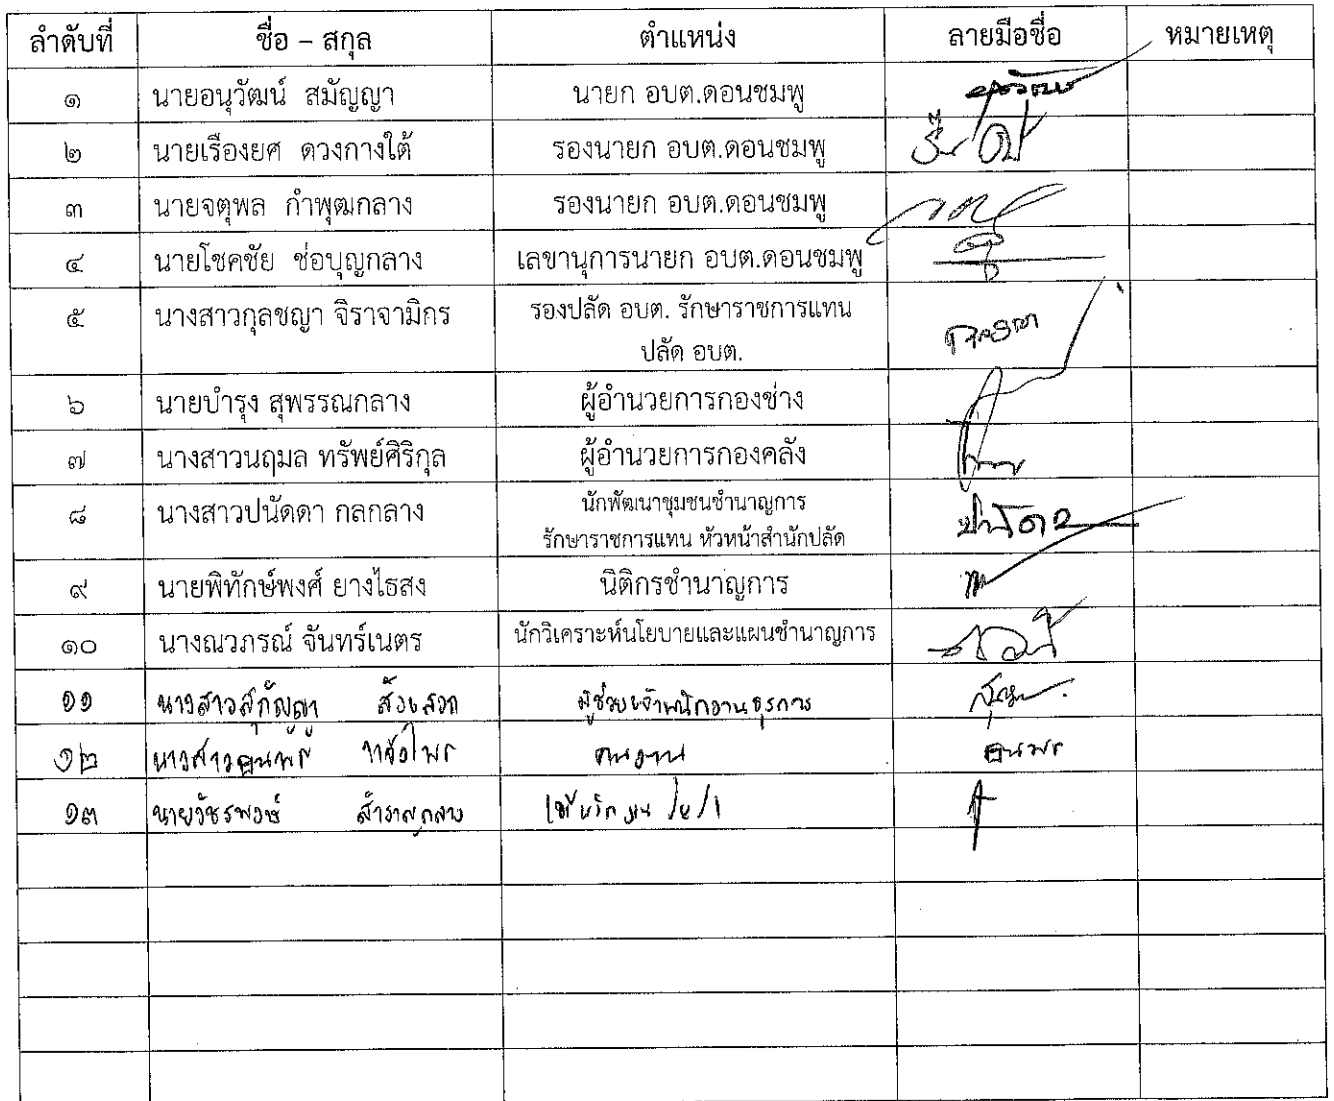 ลำดับที่ ชื่อ – สกุล ตำแหน่ง ลายมือชื่อ หมายเหตุ
๑ นายอนุวัฒน์ สมัญญา นายก อบต.ดอนชมพู
๒ นายเรืองยศ ดวงกางใต้ รองนายก อบต.ดอนชมพู
๓ นายจตุพล กำพุฒกลาง รองนายก อบต.ดอนชมพู
๔ นายโชคชัย ช่อบุญกลาง เลขานุการนายก อบต.ดอนชมพู
๕ นางสาวกุลชญา จิราจามิกร รองปลัด อบต. รักษาราชการแทน
ปลัด อบต.
๖ นายบำรุง สุพรรณกลาง ผู้อำนวยการกองช่าง
๗ นางสาวนฤมล ทรัพย์ศิริกุล ผู้อำนวยการกองคลัง
๘ นางสาวปนัดดา กลกลาง นักพัฒนาชุมชนชำนาญการ ปนัดดา
รักษาราชการแทน หัวหน้าสำนักปลัด
๙ นายพิทักษ์พงศ์ ยางไธสง นิติกรชำนาญการ
๑๐ นางณวภรณ์ จันทร์เนตร นักวิเคราะห์นโยบายและแผนชำนาญการ
๑๑ นางสาวสุกัญญา ผู้ช่วยเจ้าพนักงานธุรการ
๑๒ นางสาว คนงาน
๑๓ นายวัชรพงษ์ สำราญกลาง